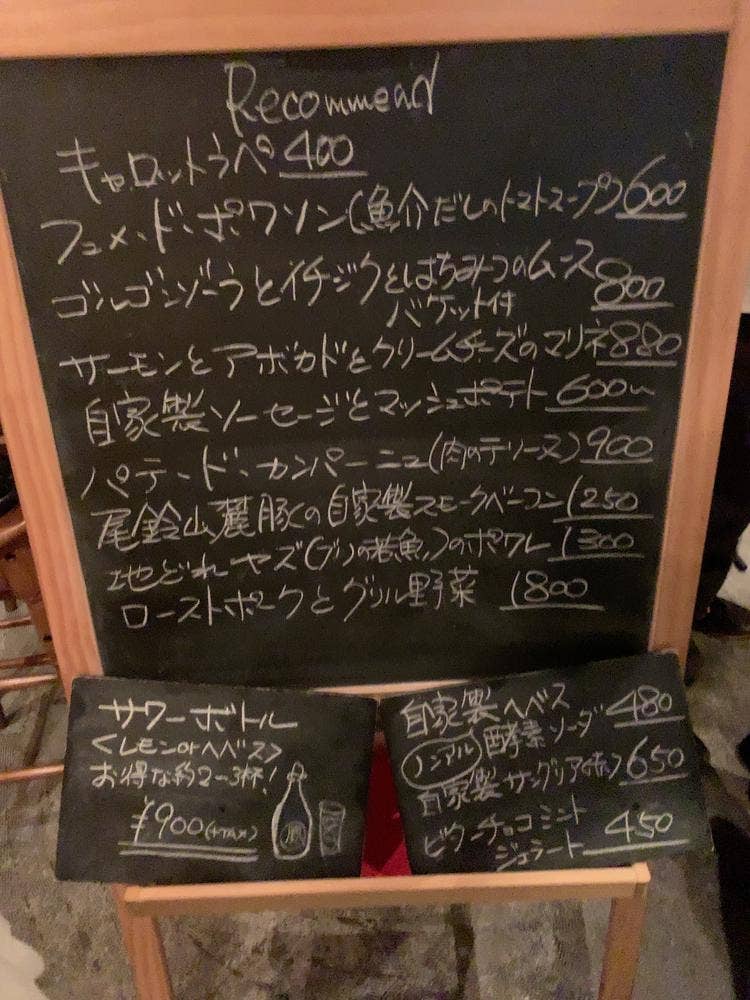 Recommend
キャロットラペ 400
フュメ・ド・ポワソン(魚介だしのトマトスープ) 600
ゴルゴンゾーラとイチジクとはちみつのムース 800
バケット付
サーモンとアボカドとクリームチーズのマリネ 880
自家製ソーセージとマッシュポテト 600〜
パテ・ド・カンパーニュ(肉のテリーヌ) 900
尾鈴山麓豚の自家製スモークベーコン 1250
地どれヤズ(ブリの若魚)のポワレ 1300
ローストポークとグリル野菜 1800
サワーボトル
<レモンorヘベス>
お得な約2~3杯!
¥900(+TAX)
自家製ヘベス
ノンアル 酵素ソーダ 480
自家製サングリア(赤) 650
ビターチョコミント
ジェラート 450